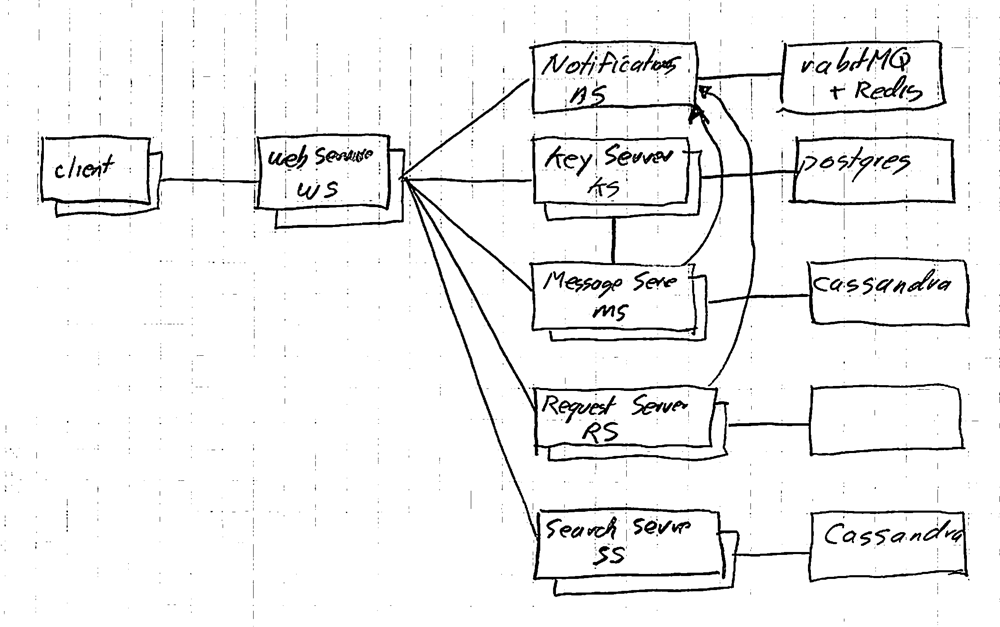 client
web Service
WS
Notifications
NS
rabitMQ
+ Redis
Key Server
KS
postgres
Message Serve
MS
Cassandra
Request Server
RS
Search Serve
SS
Cassandra